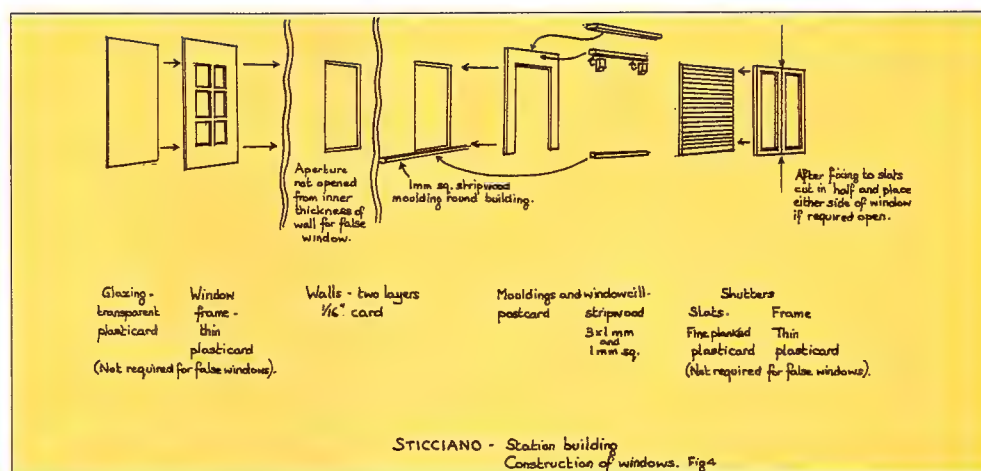 Aperture
not opened
from inner
thickness of
wall for false
window.
1mm sq. stripwood
moulding round building.
After fixing to slats
cut in half and place
either side of window
if required open.
Glazing -
transparent
plasticard
Window
frame -
thin
plasticard
(Not required for false windows).
Walls - two layers
1/16" card
Mouldings and windowcill-
postcard stripwood
3x1mm
and
1mm sq.
Shutters
Slats. Frame
Fine planked Thin
plasticard plasticard
(Not required for false windows).
STICCIANO - Station building
Construction of windows. Fig4